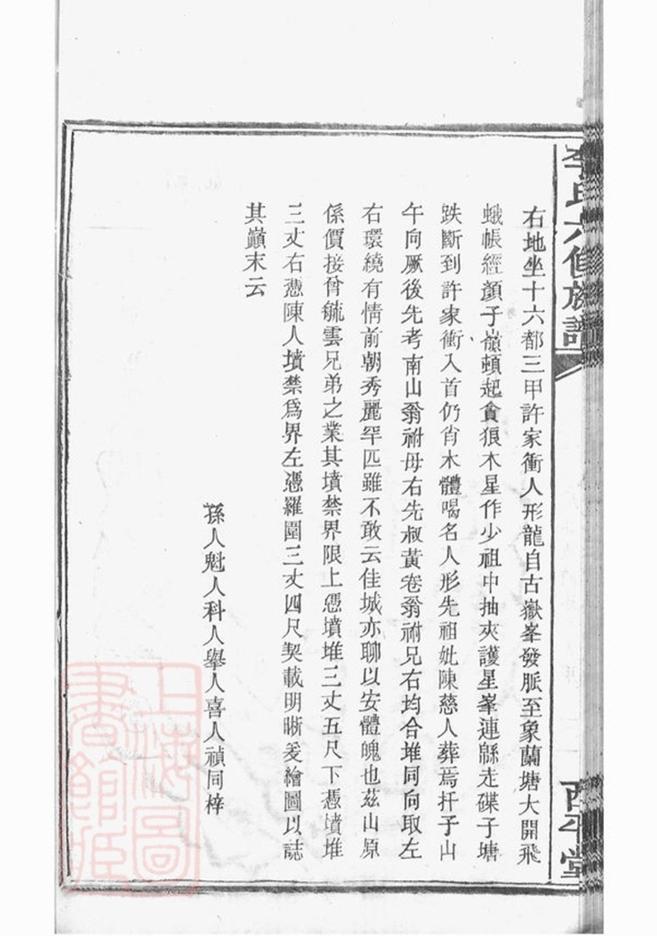 李氏六修族譜
西平堂
右地坐十六都三甲許家衝人形龍自古嶽峯發脈至象蘭塘大開飛
蛾帳經顏子嶺頓起貪狼木星作少祖中抽夾護星峯連緜走磜子塘
跌斷到許家衝入首仍肖木體喝名人形先祖妣陳慈人葬焉扦子山
午向厥後先考南山翁祔母右先叔黃卷翁祔兄右均合堆同向取左
右環繞有情前朝秀麗罕匹雖不敢云佳城亦聊以安體魄也茲山原
係價接曾毓雲兄弟之業其墳禁界限上憑墳堆三丈五尺下憑墳堆
三丈右憑陳人墳禁爲界左憑羅圍三丈四尺契載明晰爰繪圖以誌
其巔末云
孫人魁人科人舉人喜人禎同梓
上海圖書館藏